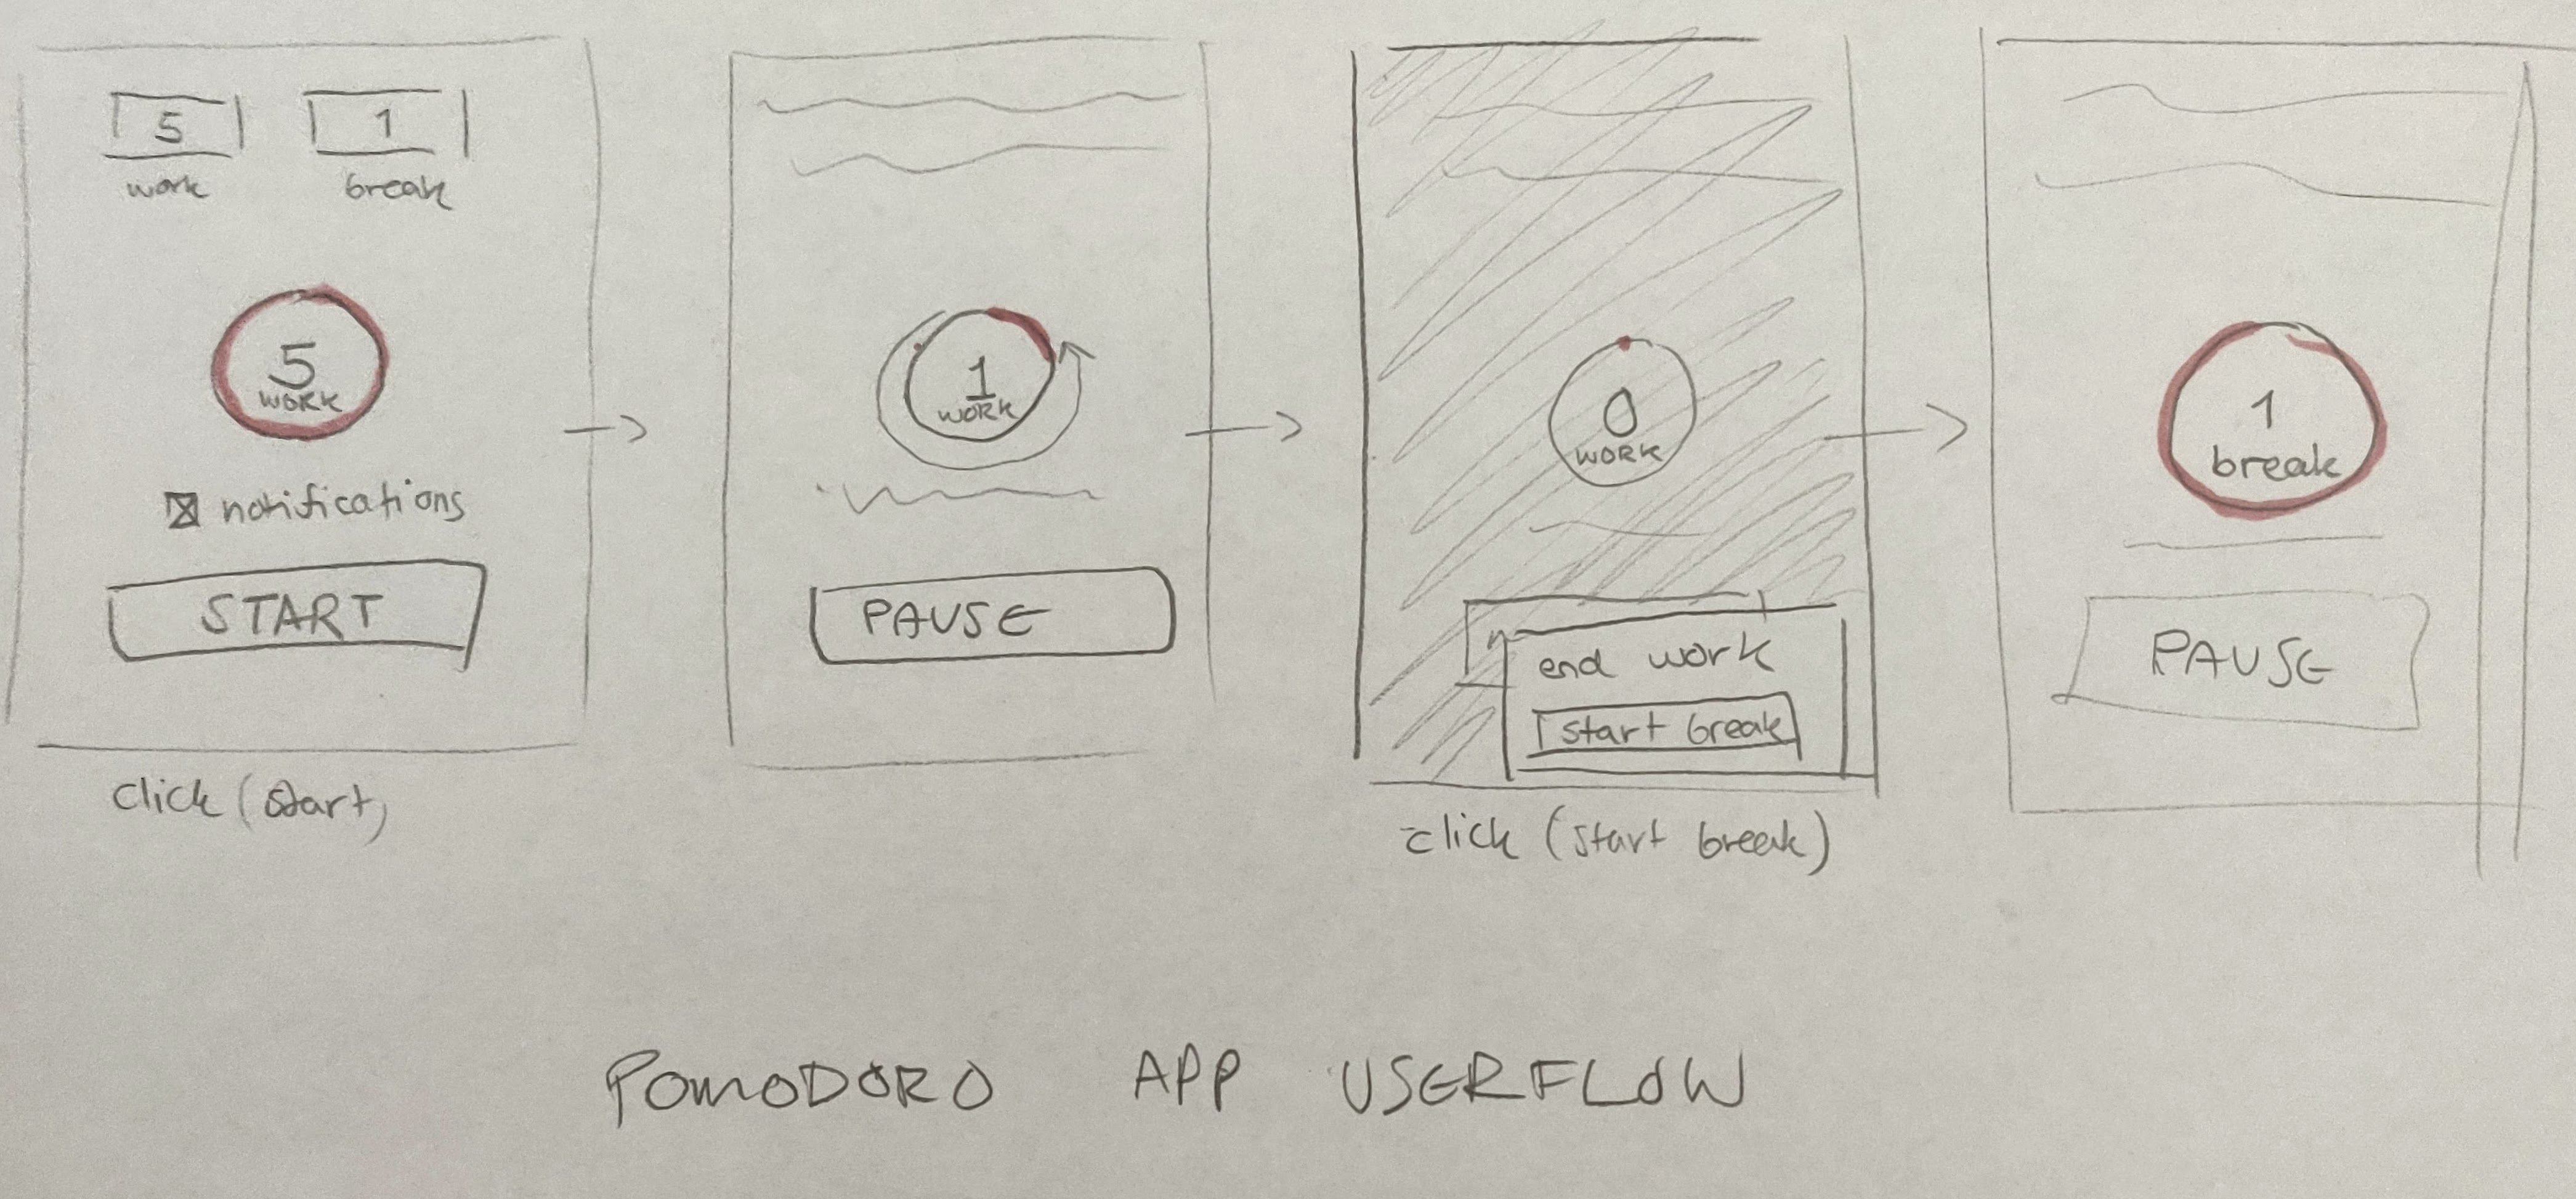 5 1
work break
5
WORK
notifications
START
click (start)
1
WORK
PAUSE
0
WORK
end work
start break
click (start break)
1
break
PAUSE
POMODORO APP USERFLOW